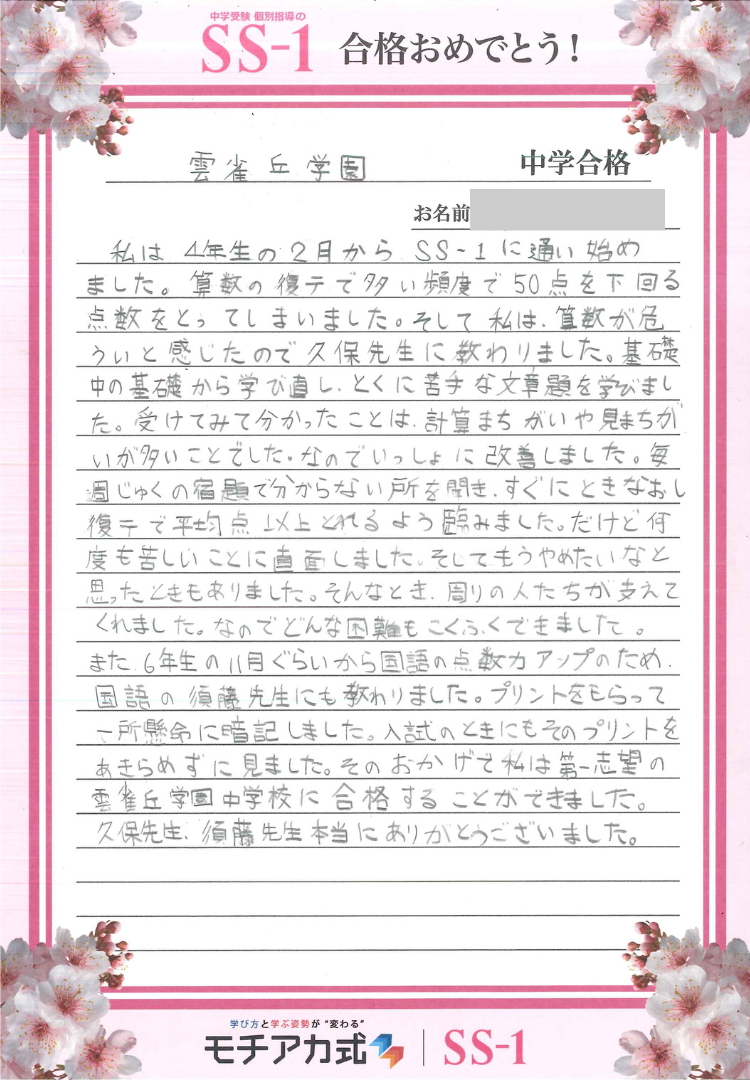 中学受験 個別指導の
SS-1 合格おめでとう!
雲雀丘学園 中学合格
お名前
私は4年生の2月からSS-1に通い始め
ました。算数の復テで多い頻度で50点を下回る
点数をとってしまいました。そして私は、算数が危
ういと感じたので久保先生に教わりました。基礎
中の基礎から学び直し、とくに苦手な文章題を学びまし
た。受けてみて分かったことは、計算まちがいや見まちが
いが多いことでした。なのでいっしょに改善しました。毎
週じゅくの宿題で分からない所を聞き、すぐにときなおし
復テで平均点以上とれるよう臨みました。だけど何
度も苦しいことに直面しました。そしてもうやめたいなと
思ったときもありました。そんなとき、周りの人たちが支えて
くれました。なのでどんな困難もこくふくできました。
また、6年生の11月ぐらいから国語の点数力アップのため、
国語の須藤先生にも教わりました。プリントをもらって
一所懸命に暗記しました。入試のときにもそのプリントを
あきらめずに見ました。そのおかげで私は第一志望の
雲雀丘学園中学校に合格することができました。
久保先生、須藤先生本当にありがとうございました。
学び方と学ぶ姿勢が“変わる”
モチアカ式 SS-1